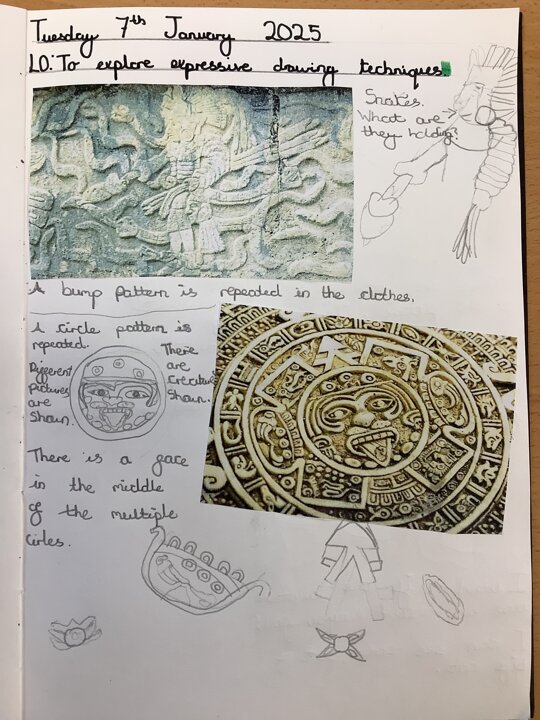 Tuesday 7th January 2025
LO: To explore expressive drawing techniques.
Snakes.
What are
they holding?
A bump pattern is repeated in the clothes.
A circle pattern is
repeated.
Different
pictures
are
shown.
There
are
creatures
shown.
There is a face
in the middle
of the multiple
circles.